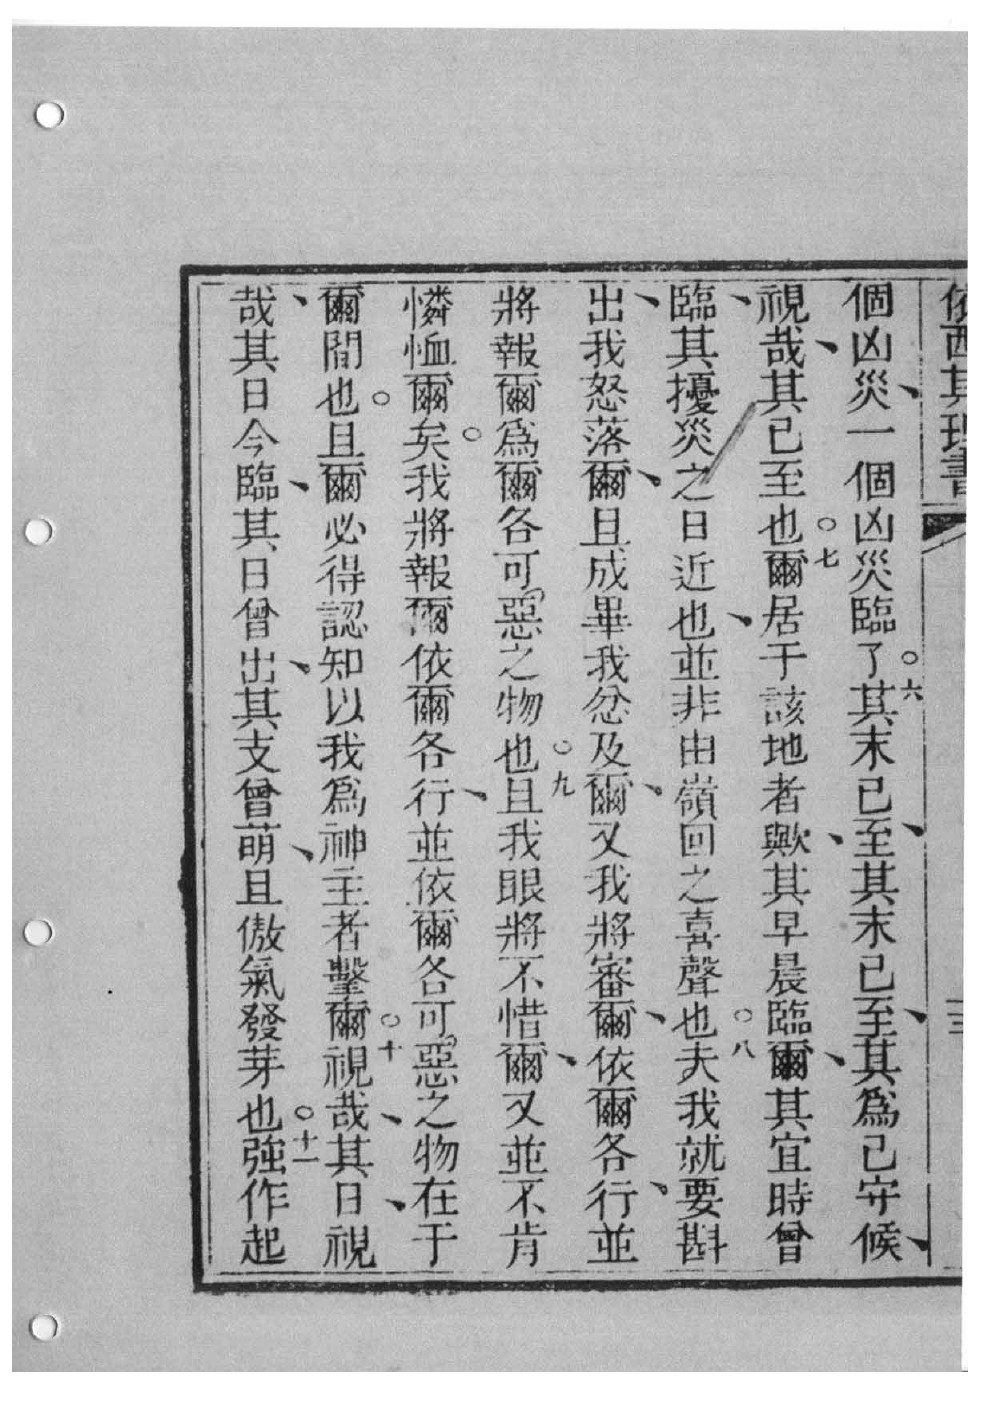 依西其理書 三
個凶災、一個凶災臨了。六其末已至、其末已至、其爲已守候、
視哉、其已至也。七爾居于該地者歟、其早晨臨爾、其宜時曾
臨、其擾災之日近也、並非由嶺回之喜聲也。八夫我就要斟
出、我怒落爾、且成畢我忿及爾、又我將審爾、依爾各行、並
將報爾爲爾各可惡之物也。九且我眼將不惜爾、又並不肯
憐恤爾矣。我將報爾依爾各行、並依爾各可惡之物在于
爾間也。且爾必得認知以我爲神主者鑿爾。十視哉、其日、視
哉、其日今臨、其日曾出、其支曾萌、且傲氣發芽也。十一強作起